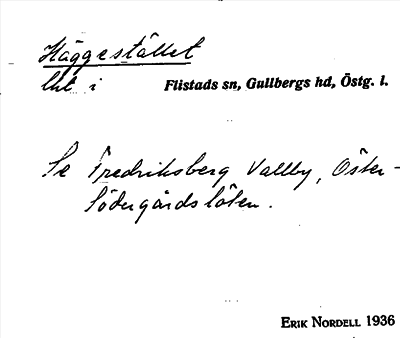 Häggestället
lht i Flistads sn, Gullbergs hd, Östg. l.
Se Fredriksberg Vallby, Öster-
Södergårdslöten.
ERIK NORDELL 1936